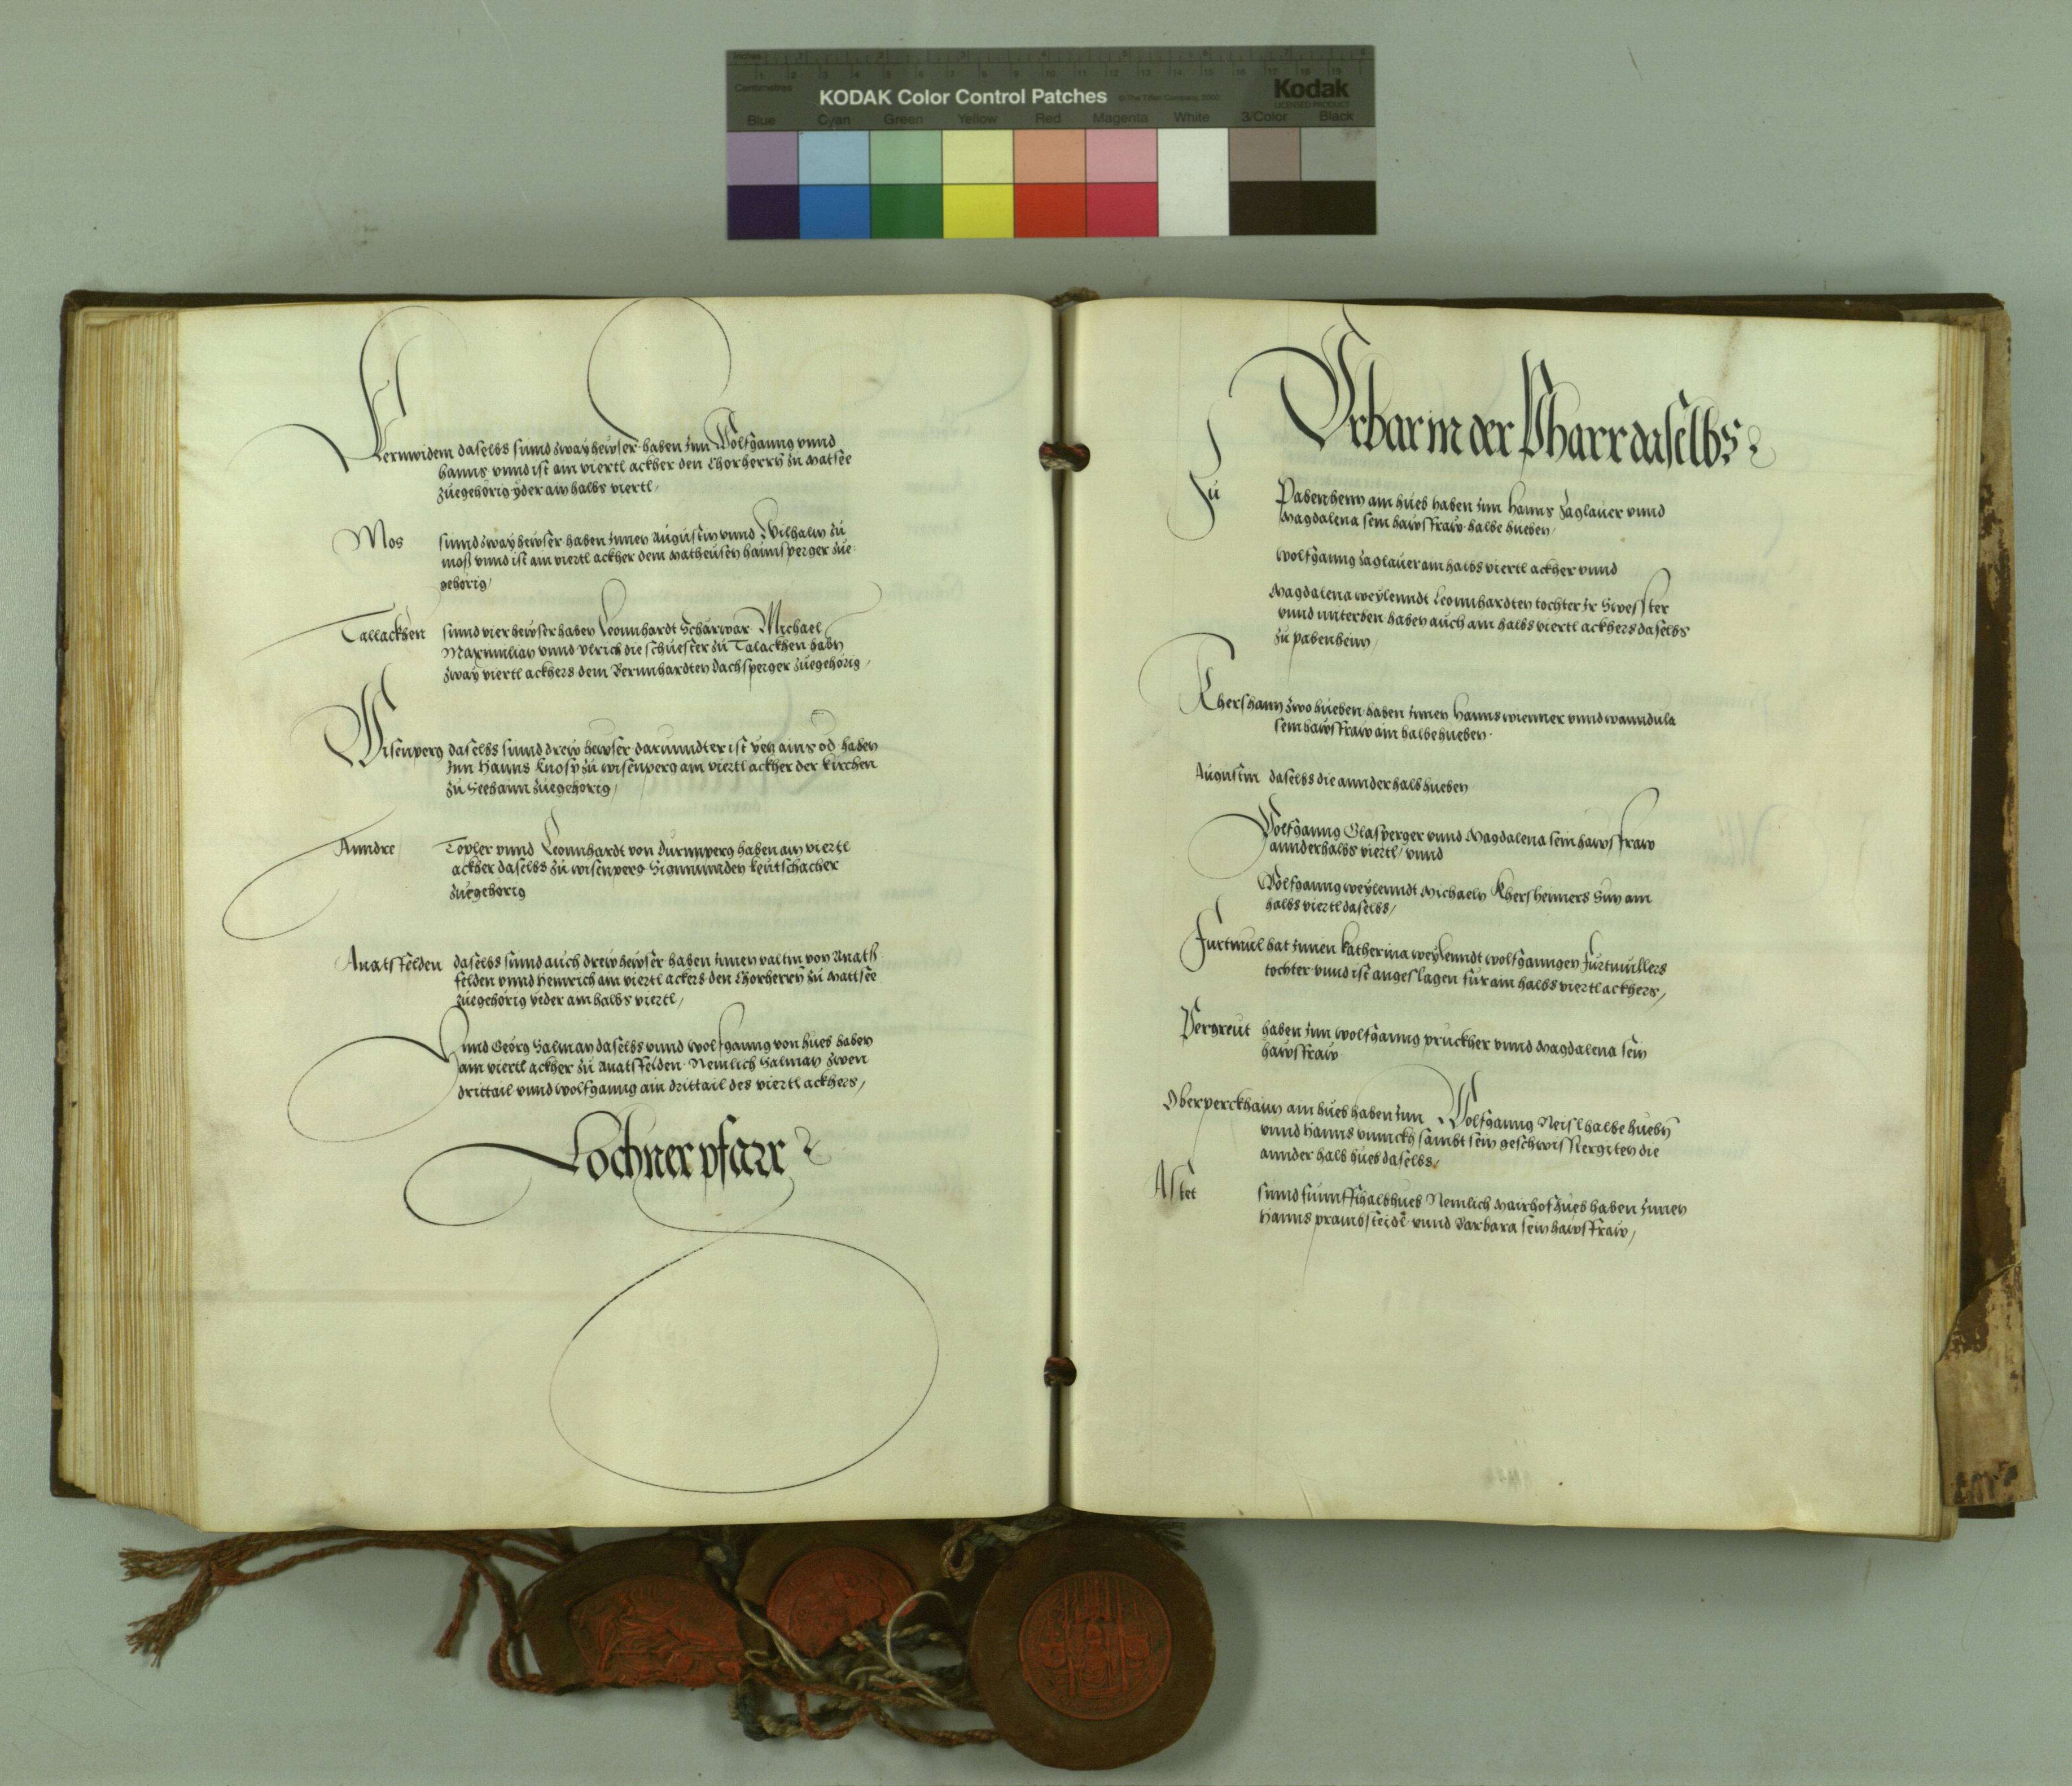 Inches 1 2 3 4 5 6 7 8
1 2 3 4 5 6 7 8 9 10 11 12 13 14 15 16 17 18 19
Centimetres
KODAK Color Control Patches © The Tiffen Company, 2000 Kodak
LICENSED PRODUCT
Blue Cyan Green Yellow Red Magenta White 3/Color Black
daselbs sind zway hewser haben Inn Wolfganng vnnd
Hanns vnnd ist ain viertl ackher den Chorherrn zu Matsee
zuegehörig yder ain halbs viertl /
Mos sinnd zway hewser haben Innen Augustin vnnd Wilhalm zu
moß vnnd ist ain viertl ackher dem Matheusen haunsperger zue
gehörig /
Tallackhen sinnd vier hewser haben Leonnhardt Scharwar Michael
Maximilian vnnd Vlrich die schuester zu Talackhen habn
zway viertl ackhers dem Bernnhardten Dachsperger zuegehörig /
Wisenperg daselbs sinnd drew hewser darunndter ist yetz ains öd haben
Inn Hanns Knosp zu wisenperg ain viertl ackher der kirchen
zu Seehaim zuegehörig /
Anndre Topler vnnd Leonnhardt von Durnnperg haben ain viertl
ackher daselbs zu wisenperg Sigmunnden keutschacher
zuegehorig
Anatsfelden daselbs sinnd auch drew hewser haben Innen valtin von Anats
felden vnnd Heinrich ain viertl ackers den Chorherrn zu Mattsee
zuegehörig yeder ain halbs viertl /
Vnnd Georg Salman daselbs vnnd Wolfganng von hueb haben
ain viertl ackher zu Anatsfelden Nemlich Salman zwen
drittail vnnd wolfganng ain drittail des viertl ackhers /
Lochner pfarr
Vrbar in der Pharr daselbs
Zu Pabenhem ain hueb haben Inn Hanns Zaglauer vnnd
Magdalena sein hawsfraw halbe hueben /
Wolfganng Zaglauer ain halbs viertl ackher vnnd
Magdalena weylenndt Leonnhardten tochter Ir Swesster
vnnd miterben haben auch ain halbs viertl ackhers daselbs
zu pabenheim /
Khershaim zwo hueben haben Innen Hanns wienner vnnd wanndula
sein hawsfraw ain halbe hueben
Augustin daselbs die annder halb hueben
Wolfganng Glasperger vnnd Magdalena sein hawsfraw
annderhalbs viertl / vnnd
Wolfganng weylenndt Michaeln Khersheimers Sun ain
halbs viertl daselbs /
Furtmul hat Innen Katherina weylenndt wolfganngen Furtmullers
tochter vnnd ist angeslagen fur ain halbs viertl ackhers /
Pergreut haben Inn wolfganng pruckher vnnd Magdalena sein
hawsfraw
Oberperckhaim ain hueb haben Inn Wolfganng Neisl halbe huebn
vnnd Hanns sambt sein geschwisstergiten die
annder halb hueb daselbs /
Astet sinnd funffthalb hueb Nemlich Mairhof hueb haben Innen
Hanns prambsteidl vnnd Barbara sein hawsfraw /